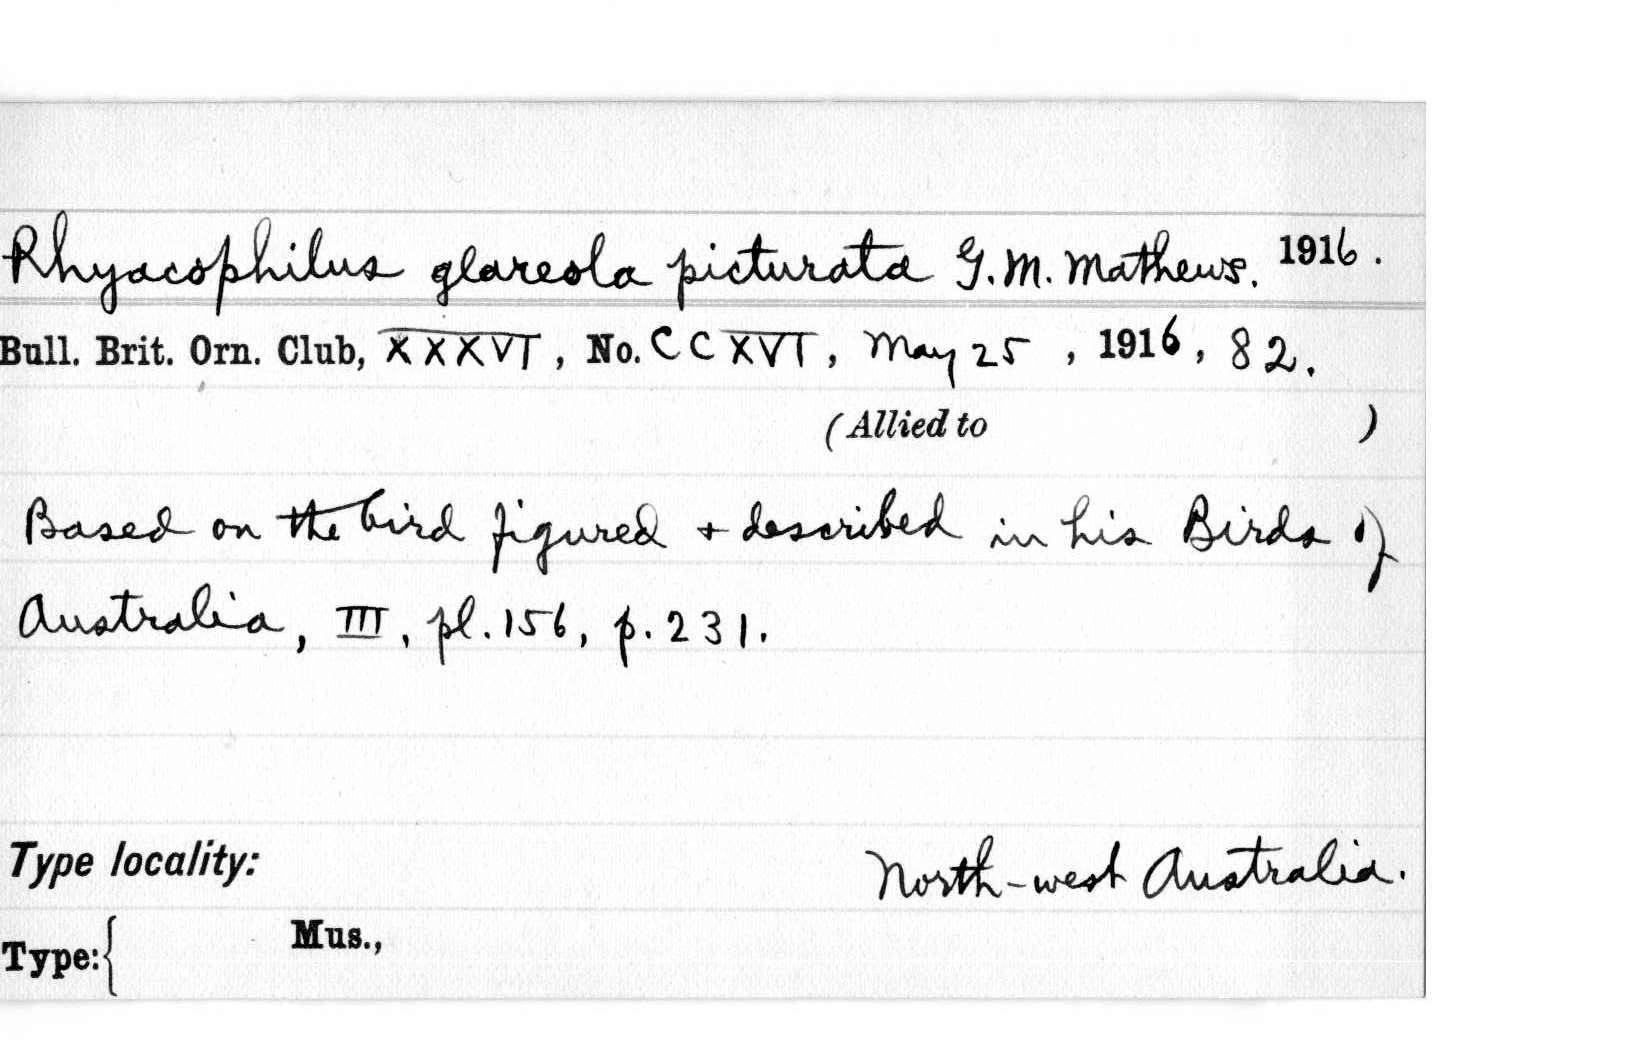 Rhyacophilus glareola picturata G.M. Mathews. 1916.
Bull. Brit. Orn. Club, XXXVI, No. CCXVI, May 25, 1916, 82.
(Allied to )
Based on the bird figured + described in his Birds of
Australia, III, pl. 156, p. 231.
Type locality: North-west Australia.
Type:{ Mus.,